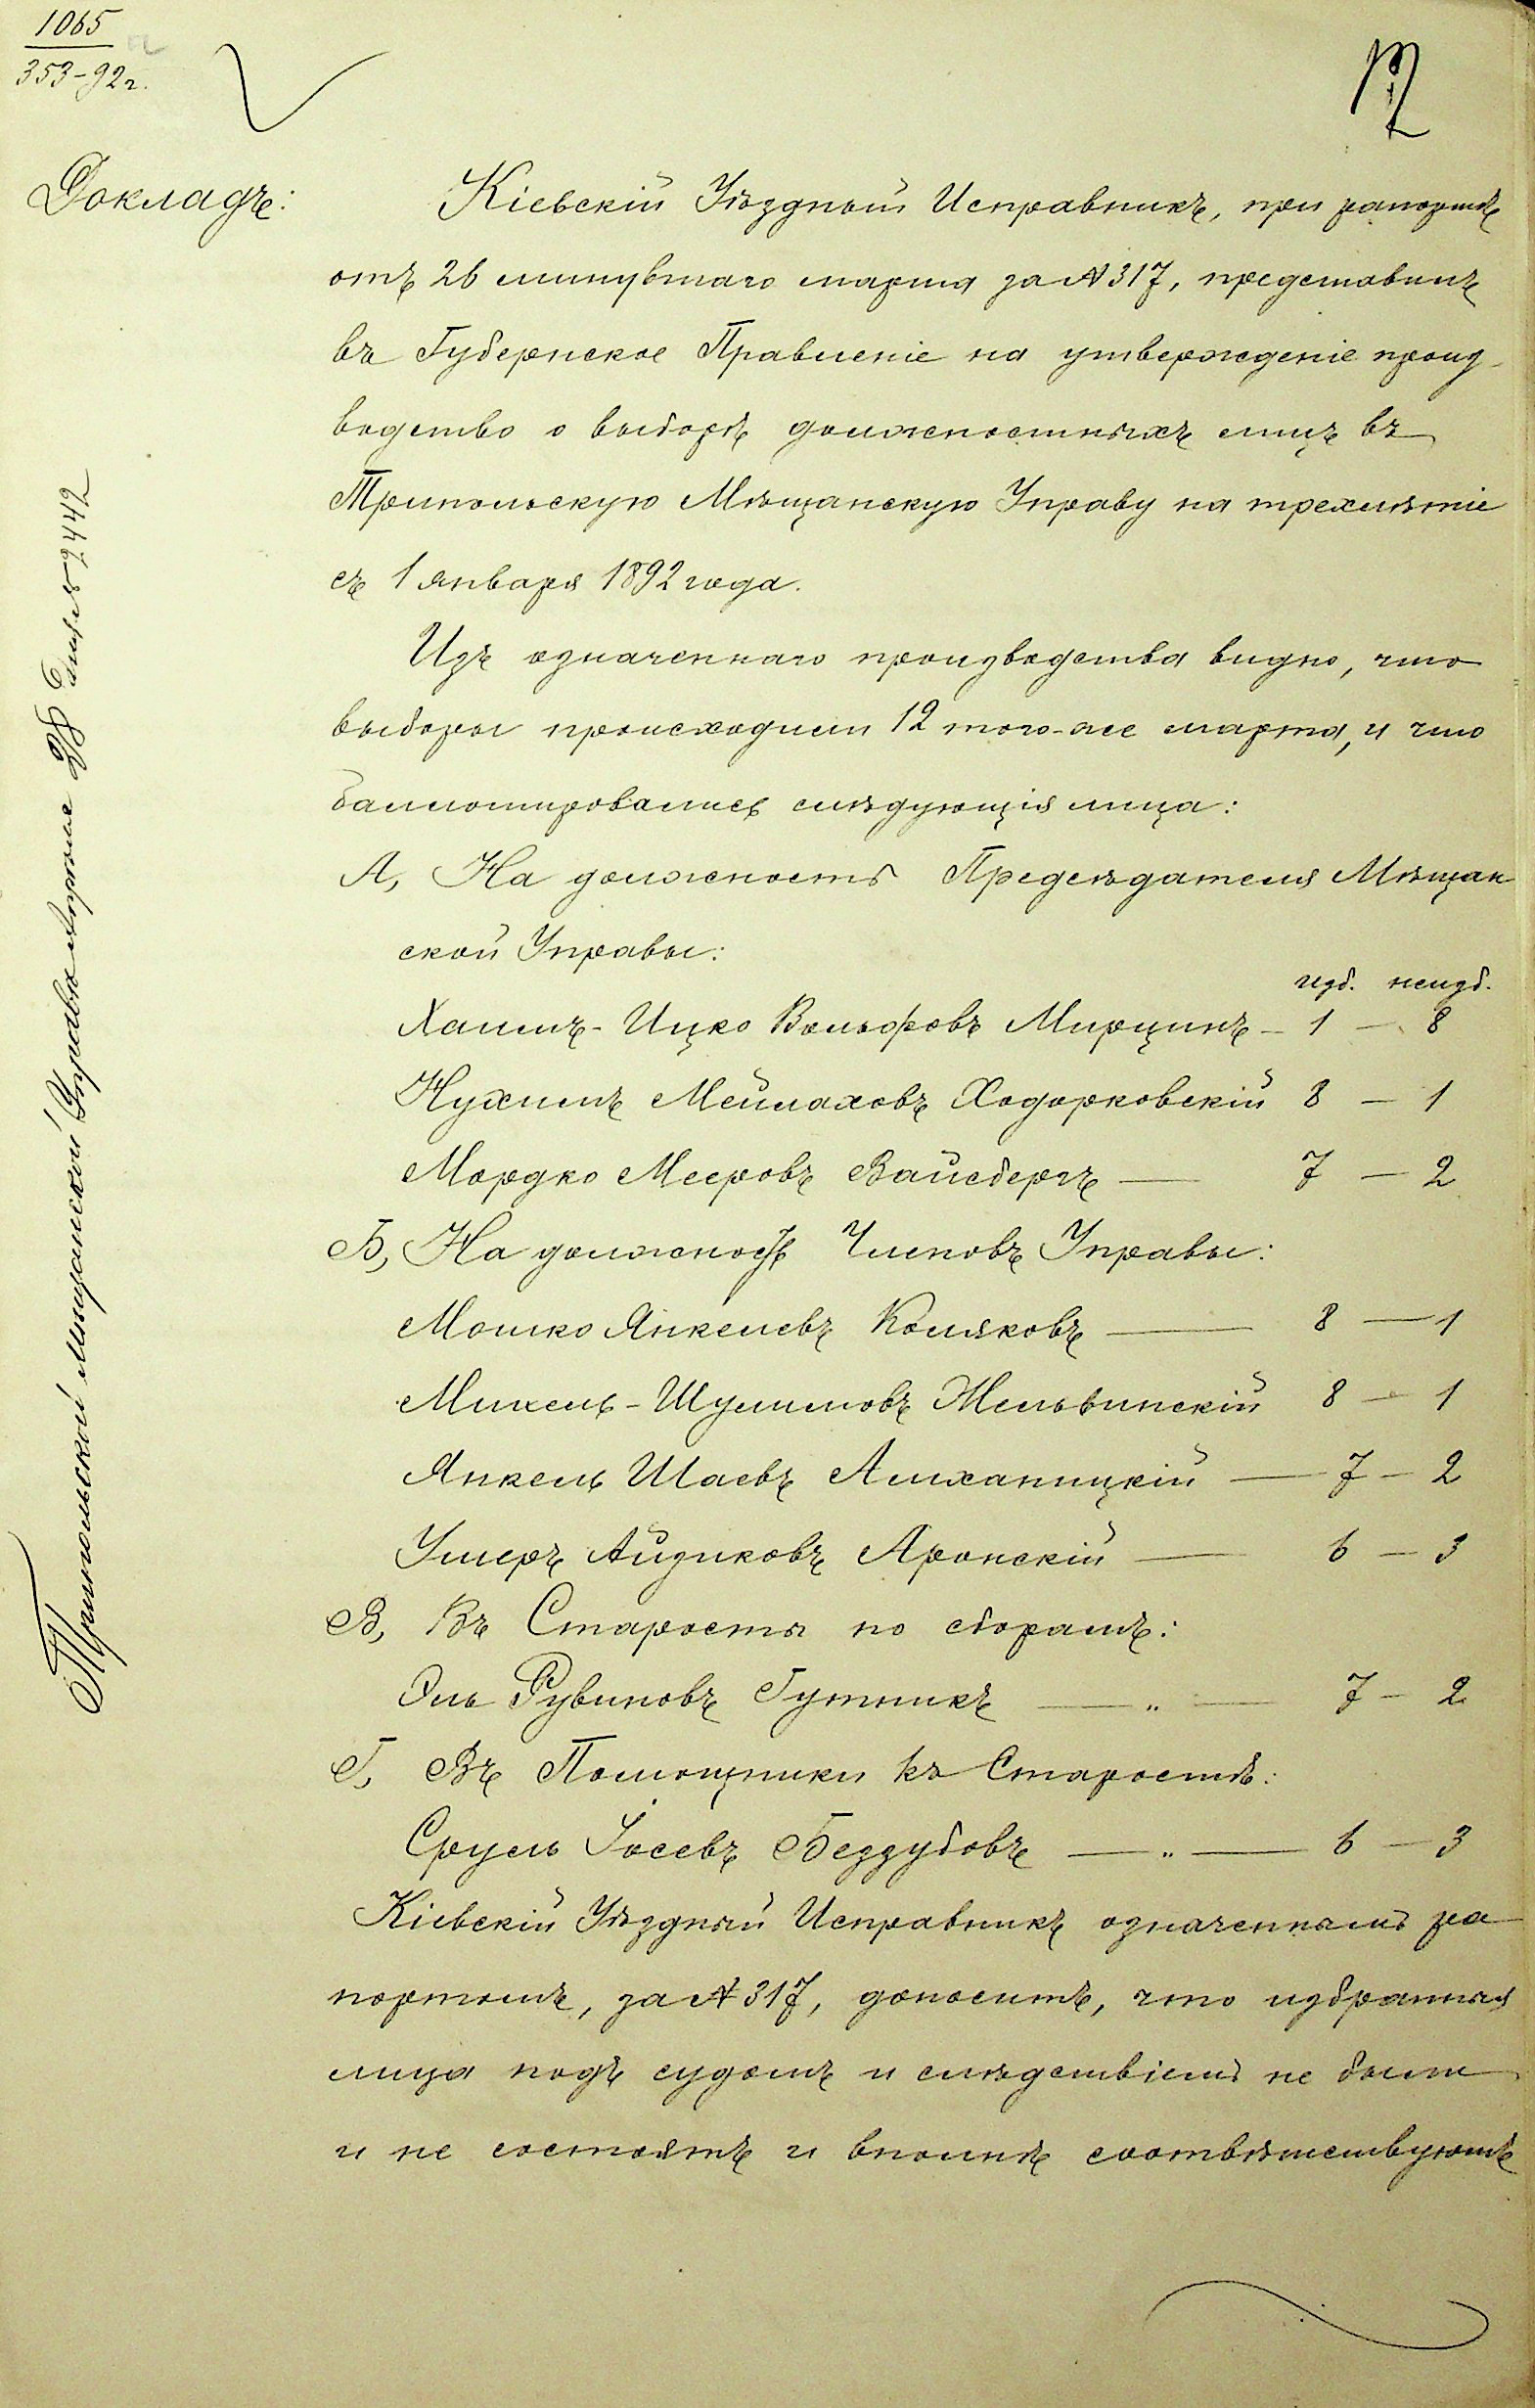 1065
353-92 г.
Докладъ:
Кіевскій Уѣздный Исправникъ, при рапортѣ
отъ 26 минувшаго марта за № 317, представилъ
въ Губернское Правленіе на утвержденіе произ-
водство о выборѣ должностныхъ лицъ въ
Трипольскую Мѣщанскую Управу на трехлѣтіе
съ 1 января 1892 года.
Изъ означеннаго производства видно, что
выборы происходили 12 того-же марта, и что
баллотировались слѣдующія лица:
А, На должность Предсѣдателя Мѣщан
ской Управы:
изб. неизб.
Хаимъ-Ицко Вольфовъ Мирцинъ - 1 - 8
Нухимъ Мейлаховъ Ходорковскій 8 - 1
Мордко Мееровъ Вайсбергъ — 7 - 2
Б, На должность Членовъ Управы:
Мошко Янкелевъ Коляковъ — 8 — 1
Михель-Шулимовъ Жельвинскій 8 - 1
Янкель Шаевъ Алиханицкій — 7 - 2
Ушеръ Айзиковъ Аронскій — 6 - 3
В, Въ Старосты по сборамъ:
Эль Рувиновъ Гутникъ — „ — 7 - 2
Г, Въ Помощники къ Старостѣ:
Сруль Іосевъ Беззубовъ — „ — 6 - 3
Кіевскій Уѣздный Исправникъ означеннымъ ра
портомъ, за № 317, доноситъ, что избранныя
лица подъ судомъ и слѣдствіемъ не были
и не состоятъ и вполнѣ соотвѣтствуютъ
Трипольской мѣщанской Управы 2442